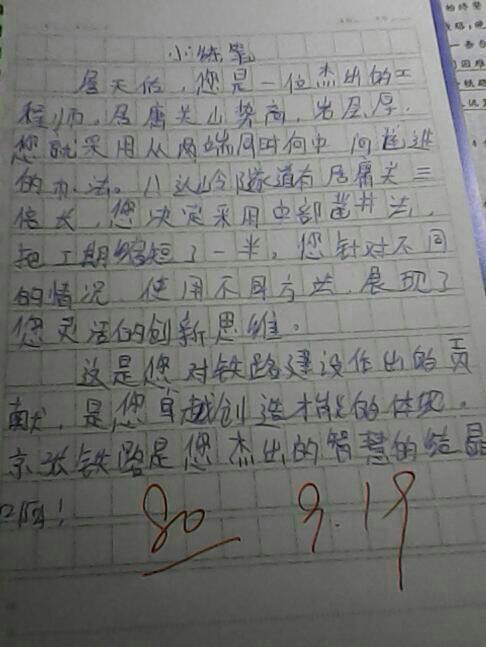 小练笔
詹天佑，您是一位杰出的工
程师，居庸关山势高，岩层厚，
您就采用从两端同时向中间凿进
的办法。八达岭隧道有居庸关三
倍长，您决定采用中部凿井法，
把工期缩短了一半，您针对不同
的情况，使用不同方法，展现了
您灵活的创新思维。
这是您对铁路建设作出的贡
献，是您卓越创造才能的体现。
京张铁路是您杰出的智慧的结晶
啊！
80 9.19